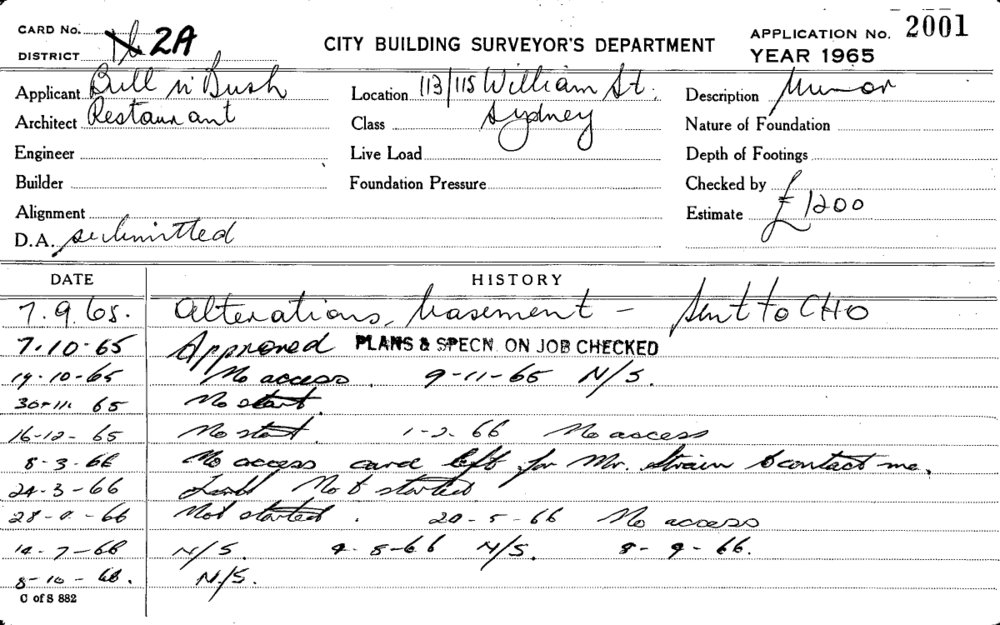 CARD No. 2A
DISTRICT
CITY BUILDING SURVEYOR'S DEPARTMENT
APPLICATION No. 2001
YEAR 1965
Applicant Bull n' Bush
Location 113/115 William St.
Description Minor
Architect Restaurant
Class Sydney
Nature of Foundation
Engineer
Live Load
Depth of Footings
Builder
Foundation Pressure
Checked by
Alignment
Estimate £1200
D.A. submitted
DATE HISTORY
7.9.65. Alterations, basement - Sent to CHO
7-10-65 Approved PLANS & SPECN. ON JOB CHECKED
19-10-65 No access. 9-11-65 N/S.
30-11-65 No start.
16-12-65 No start. 1-2-66 No access
8-3-66 No access card left for Mr. Strain to contact me.
24-3-66 Not started
28-4-66 Not started. 20-5-66 No access
14-7-66 N/S. 4-8-66 N/S. 8-9-66.
8-10-66. N/S.
C of S 882